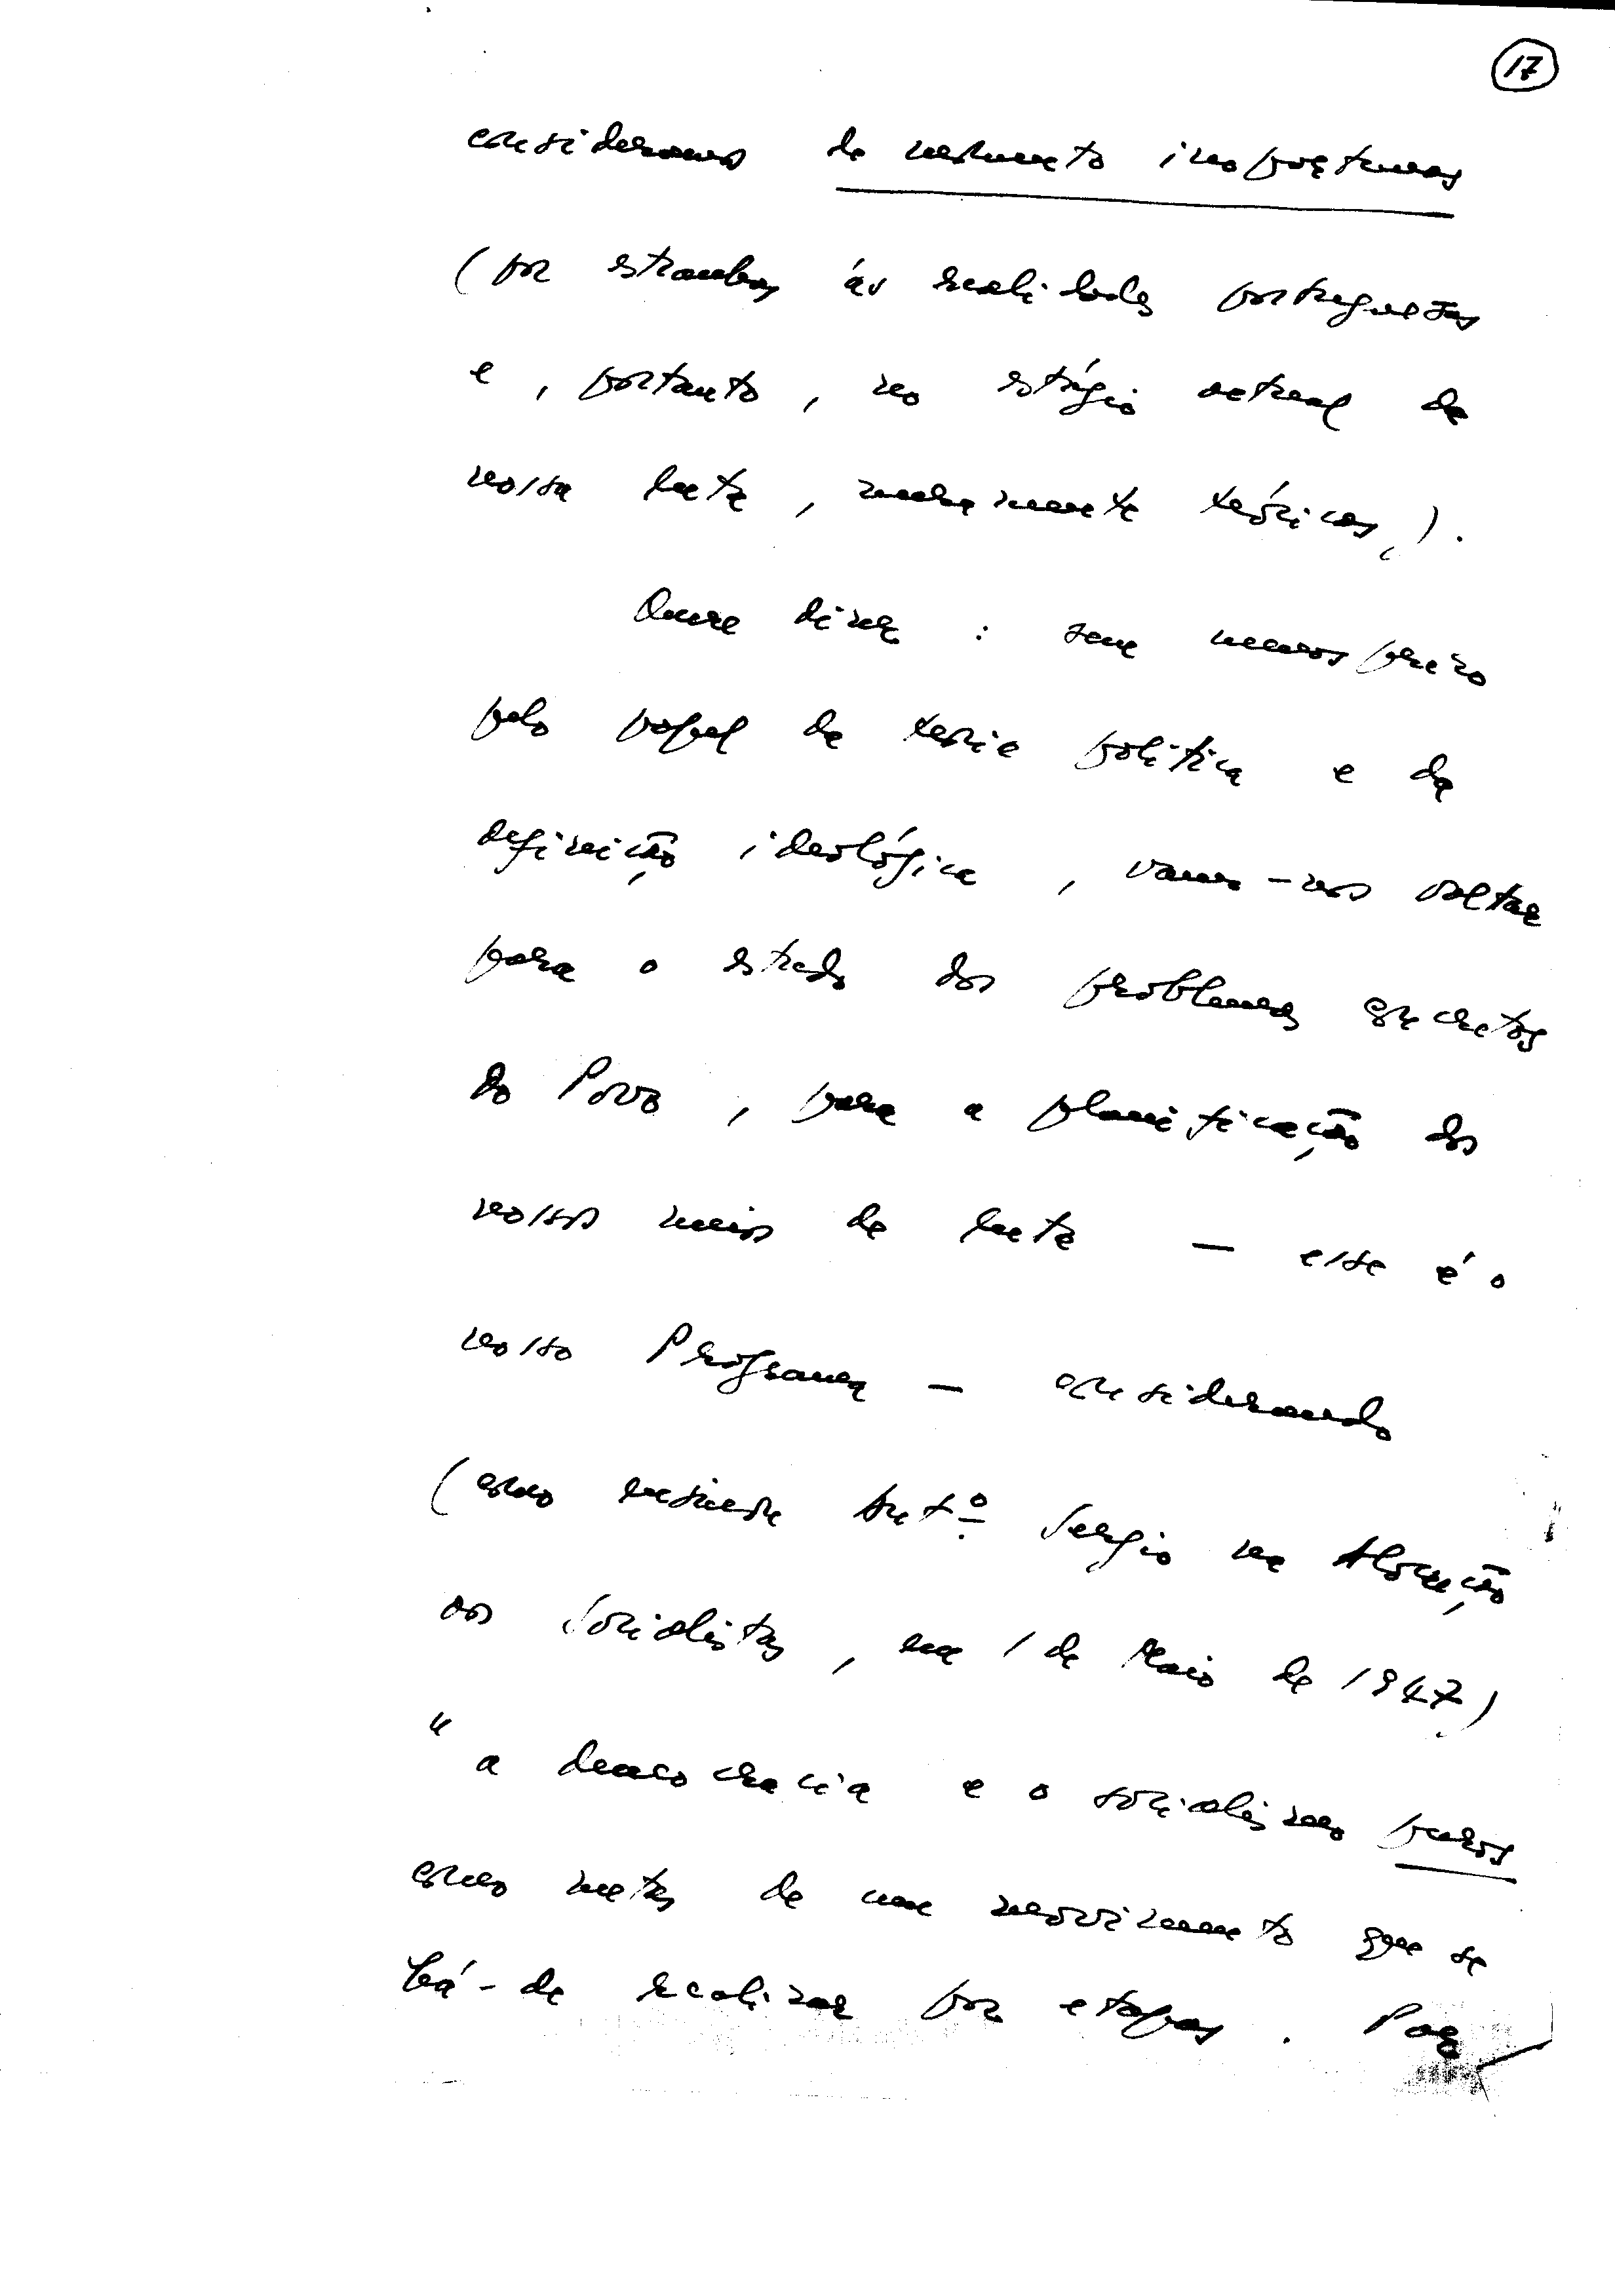 17
consideramos de momento inoportunas
(por estranhas às realidades portuguesas
e, portanto, no estágio actual da
nossa luta, meramente teóricas).
Quere dizer: sem menosprezo
pelo papel da teoria política e da
definição ideológica, vamo-nos voltar
para o estudo dos problemas concretos
do Povo, para a planificação dos
nossos meios de luta — esse é o
nosso Programa — considerando
(como ensinou Antº Sergio na Alocução
aos Socialistas, em 1 de Maio de 1947)
"a democracia e o socialismo puros
como metas de um movimento que se
há-de realizar por etapas. Por